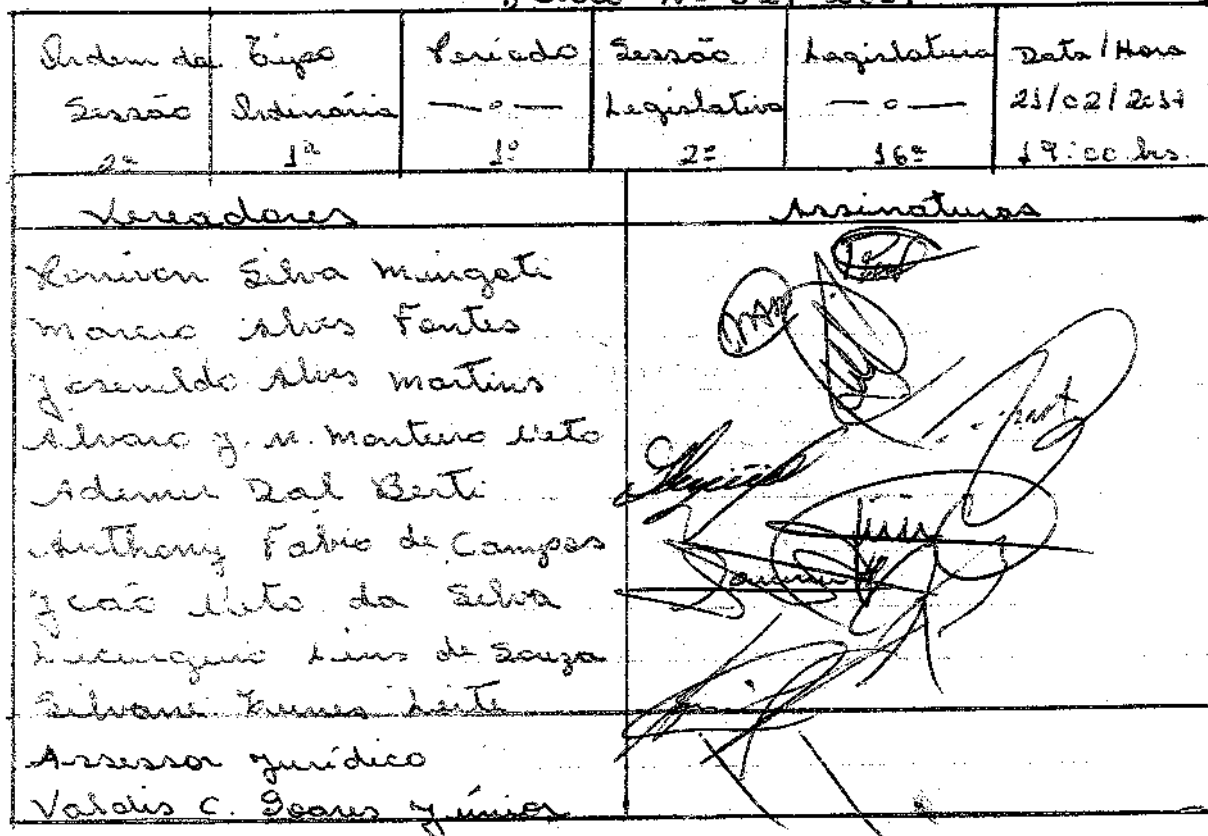 Ordem da Sessão 2ª
Tipo Ordinária 1ª
Período —o— 1º
Sessão Legislativa 2ª
Lagislatura —o— 16ª
Data/Hora 21/02/2017 19:00 hrs.
Vereadores
Assinaturas
Ronivon Silva Mingati
Marcio Alves Fontes
Josenildo Alves Martins
Alvaro J. M. Monteiro Neto
Ademir Dal Berti
Anthony Fabio de Campos
João Neto da Silva
Licurguio Lins de Souza
Silvane Nunes Leite
Assessor Jurídico
Valdis C. Soares Júnior